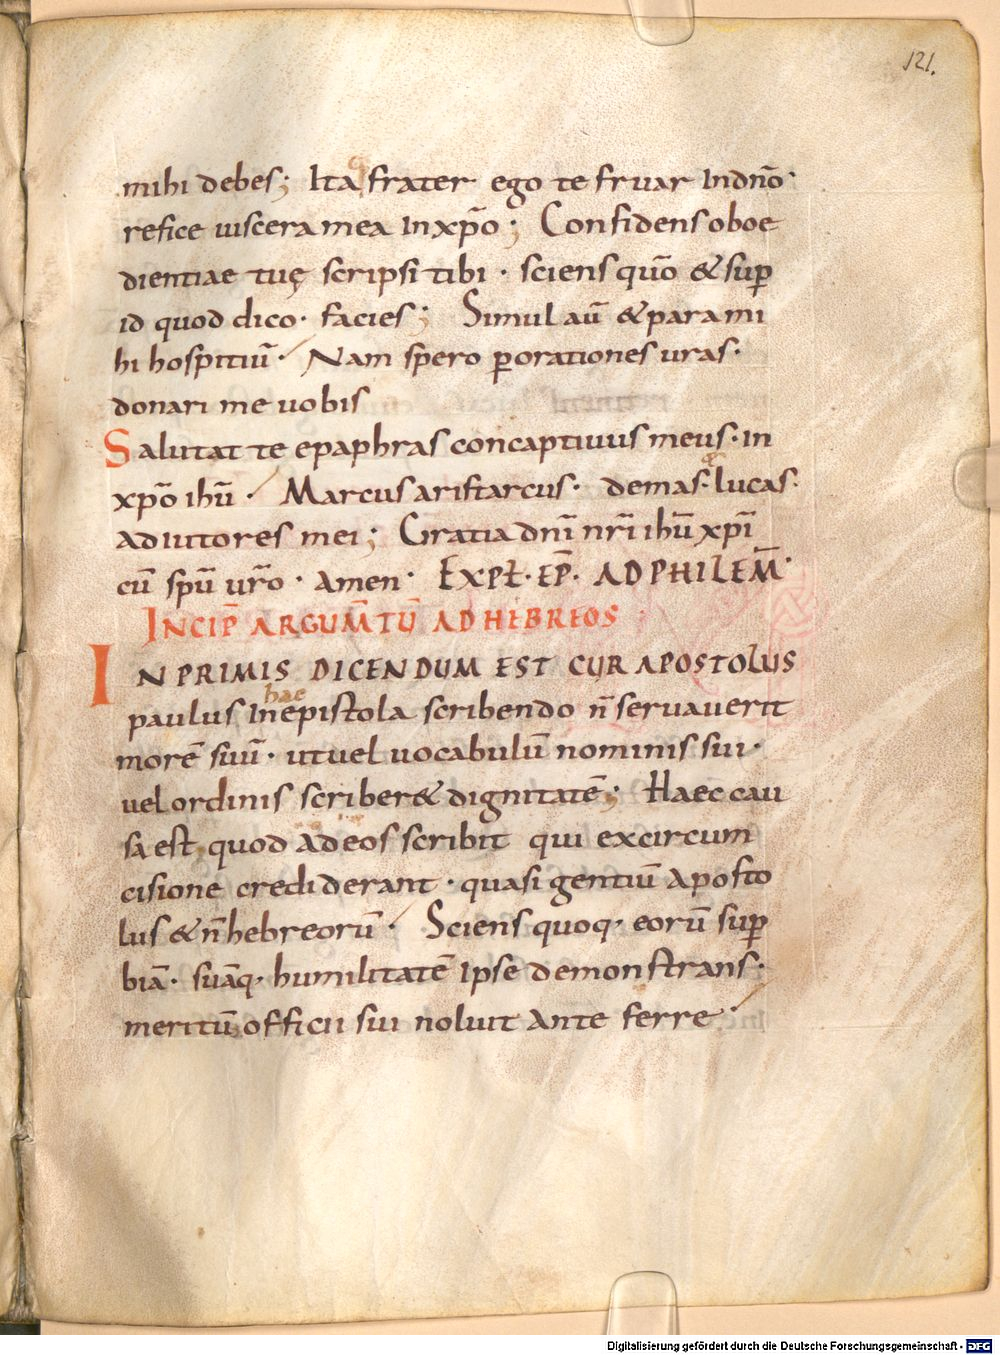 121.
mihi debes; Ita frater ego te fruar In dn̄o·
refice uiscera mea In xp̄o; Confidens oboe
dientiae tuę scripsi tibi · sciens qūo & sup̄
id quod dico · facies; Simul aū & para mi
hi hospitiū· Nam spero ꝑ orationes ur̄as·
donari me uobis
Salutat te epaphras concaptiuus meus· in
xp̄o ihū · Marcus aristarcus· demas· & lucas·
adiutores mei; Gratia dnī nr̄i ihū xp̄i
cū spū ur̄o · amen· Expł· ep̄· ad philem̄·
Incip̄ argum̄tū ad hebreos
In primis dicendum est cur apostolus
paulus In hac epistola scribendo n̄ seruauerit
morē suū · ut uel uocabulū nominis sui ·
uel ordinis scriber& dignitatē; Haec cau
sa est quod ad eos scribit qui ex circum
cisione crediderant · quasi gentiū aposto
lus & n̄ hebreorū · Sciens quoq· eorū sup̄
biā· suāq· humilitatē Ipse demonstrans·
meritū officii sui noluit ante ferre·
Digitalisierung gefördert durch die Deutsche Forschungsgemeinschaft - DFG